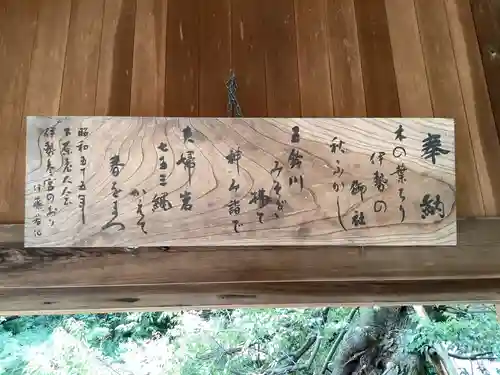 奉納
木の葉ちり
伊勢の
御社
秋ふかし
五鈴川
みそぎ
捨て
神々詣で
夫婦岩
七五三縄
かえて
春をまつ
昭和五十五年
下原老人会
伊勢参宮のおり